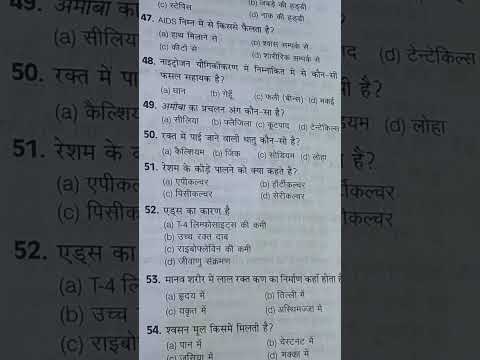 (c) स्टेपिस (b) जबड़े की हड्डी
(d) नाक की हड्डी
47. AIDS निम्न में से किससे फैलता है?
(a) हाथ मिलाने से (b) श्वास सम्पर्क से
(c) कीटों से (d) शारीरिक सम्पर्क से
48. नाइट्रोजन यौगिकीकरण में निम्नांकित में से कौन-सी
फसल सहायक है?
(a) धान (b) गेहूँ (c) फली (बीन्स) (d) मकई
49. अमीबा का प्रचलन अंग कौन-सा है?
(a) सीलिया (b) फ्लैजिला (c) कूटपाद (d) टेन्टेकिल्स
50. रक्त में पाई जाने वाली धातु कौन-सी है?
(a) कैल्शियम (b) जिंक (c) सोडियम (d) लोहा
51. रेशम के कीड़े पालने को क्या कहते है?
(a) एपीकल्चर (b) हॉर्टीकल्चर
(c) पिसीकल्चर (d) सेरीकल्चर
52. एड्स का कारण है
(a) T-4 लिम्फोसाइट्स की कमी
(b) उच्च रक्त दाब
(c) राइबोफ्लेविन की कमी
(d) जीवाणु संक्रमण
53. मानव शरीर में लाल रक्त कण का निर्माण कहाँ होता
(a) हृदय में (b) तिल्ली में
(c) यकृत में (d) अस्थिमज्जा में
54. श्वसन मूल किसमें मिलती है?
(a) पान में (b) चेस्टनट में
(c) जूसिया में (d) मक्का में
49. अमीबा का
(a) सीलिया
50. रक्त में पा
(a) कैल्शिय
51. रेशम के क
(a) एपीकल
(c) पिसीक
52. एड्स का
(a) T-4 लि
(b) उच्च
(c) राइबो
(d) टेन्टेकिल्स
है?
(d) लोहा
कल्चर